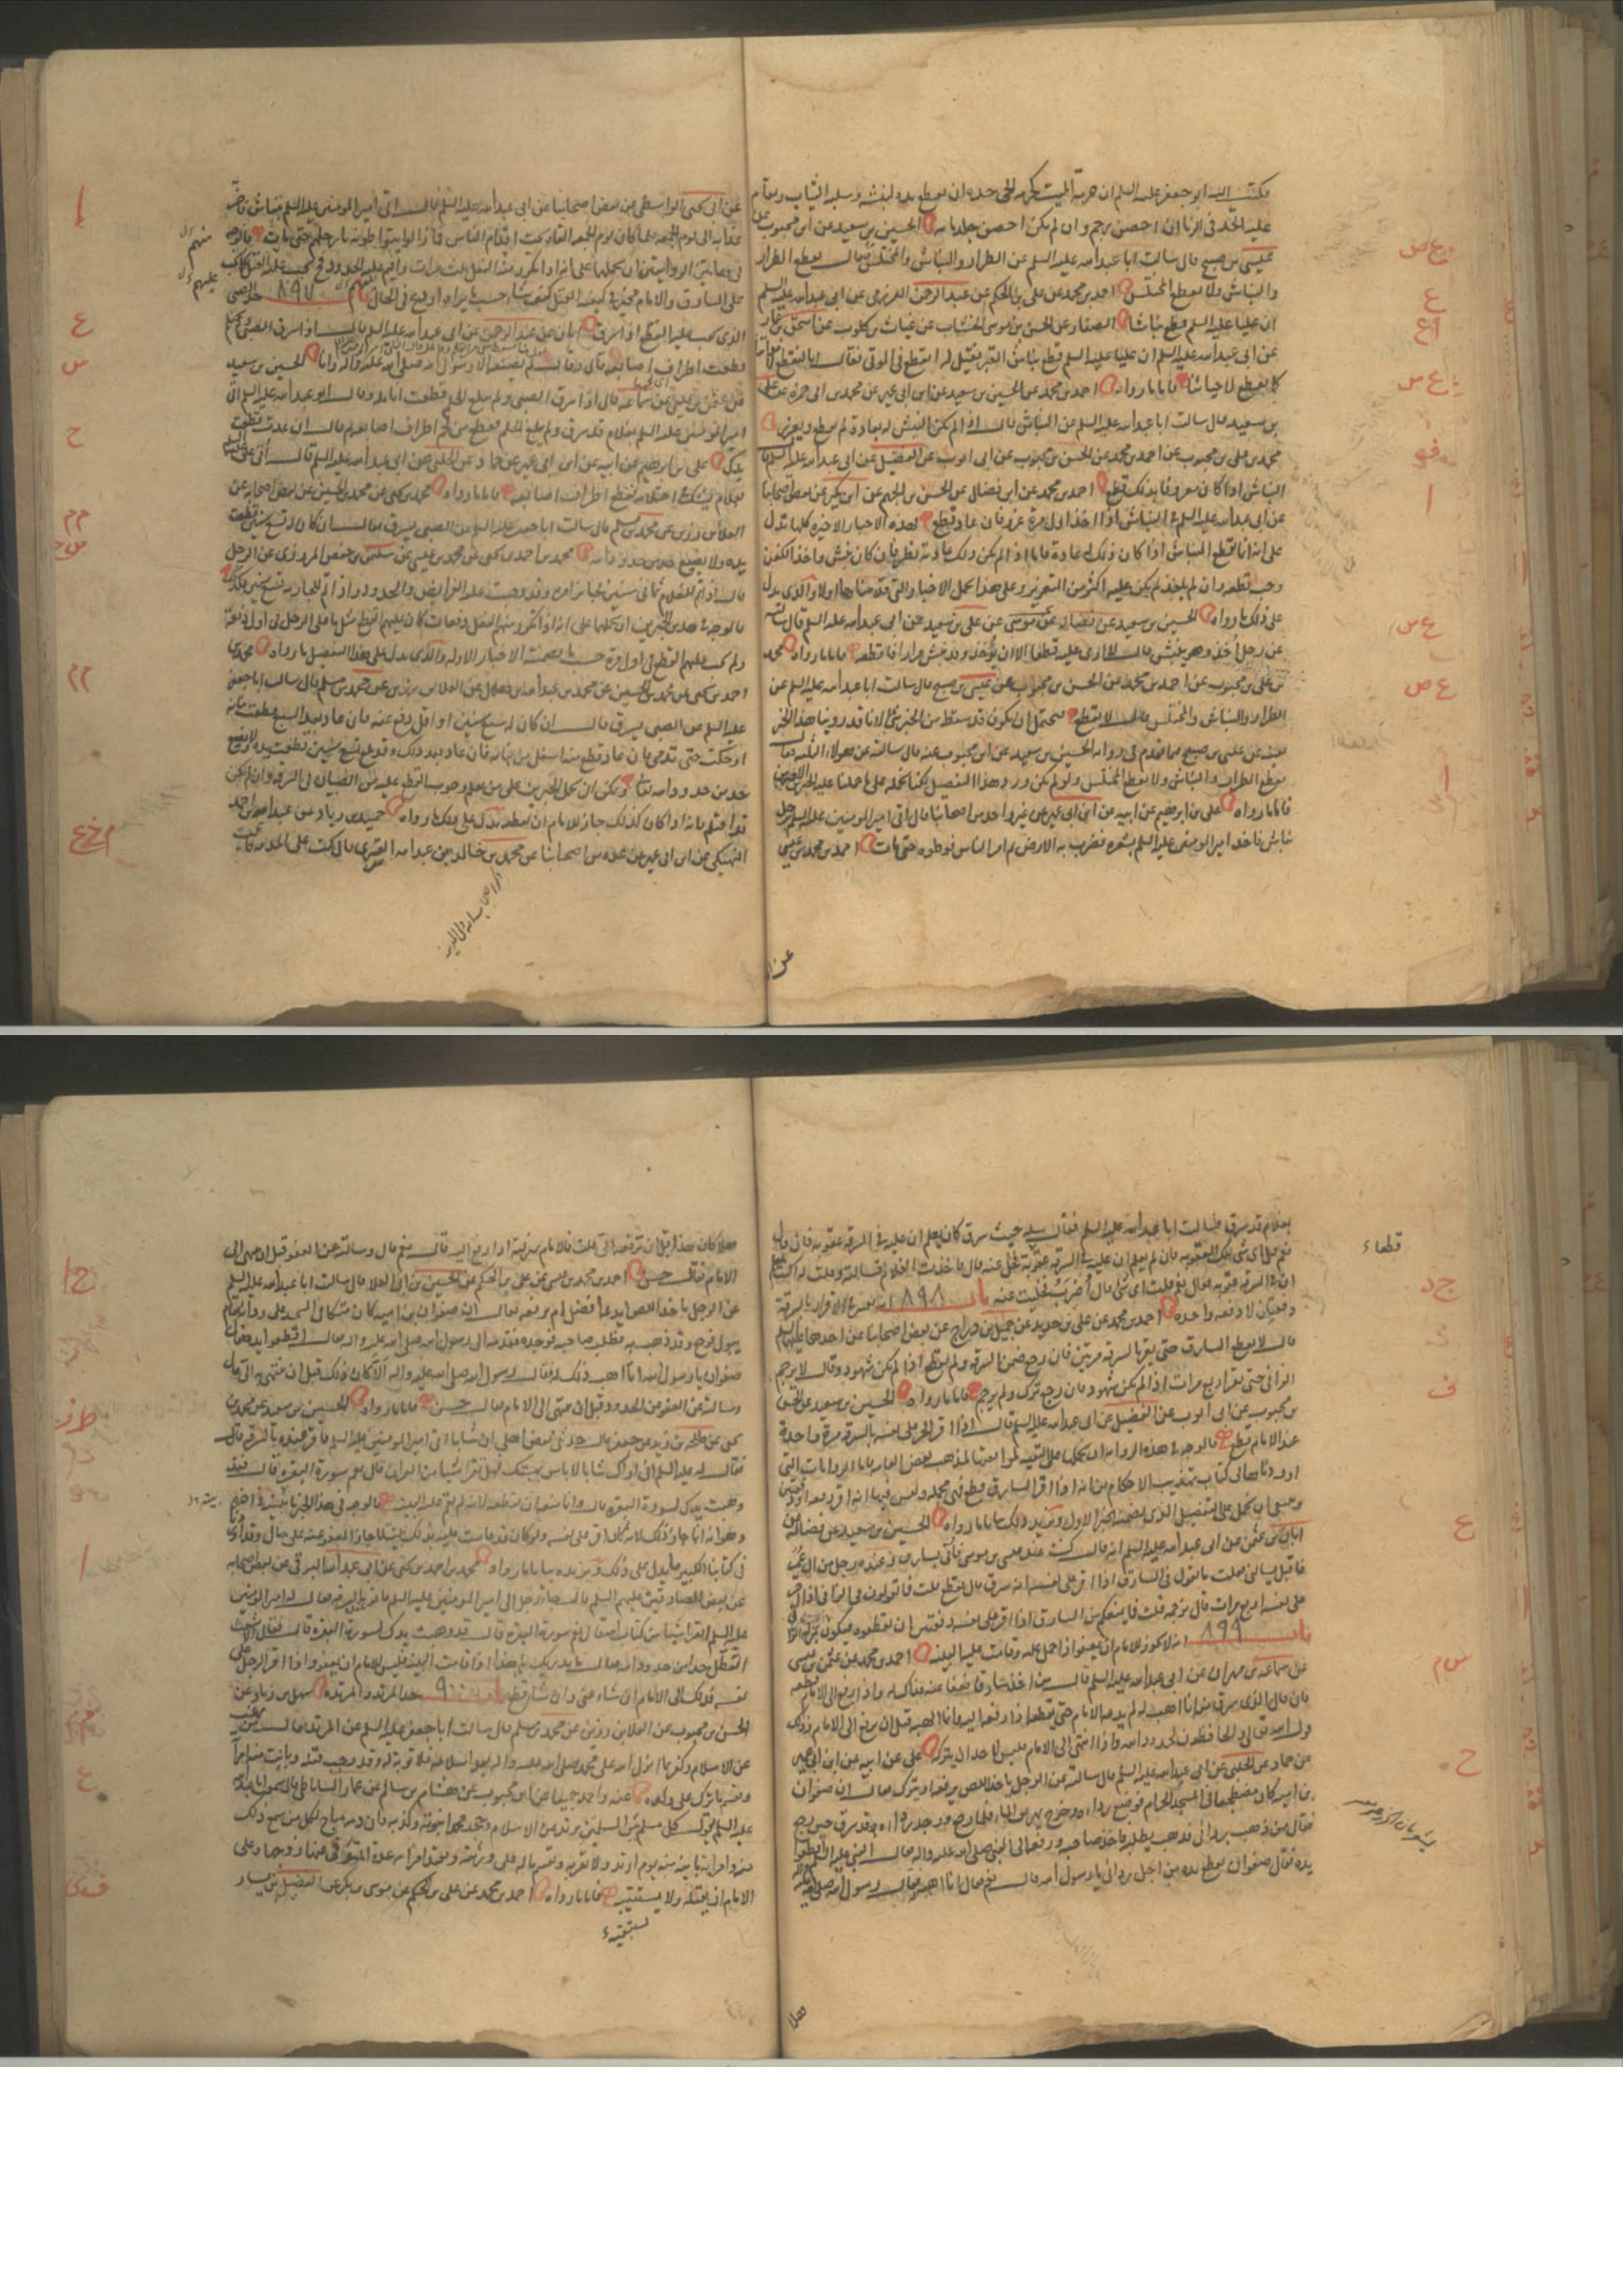 فكتب اليه ابو جعفر عليه السلم ان حرمة الميت كحرمة الحى حده ان يقطع يده لنبشه وسلبه الثياب ويقام
عليه الحد فى الزنا ان احصن رجم وان لم يكن احصن جلد مايه الحسين بن سعيد عن ابن محبوب عن
عيسى بن صبيح قال سالت ابا عبد الله عليه السلم عن الطرار والنباش والمختلس فقال يقطع الطرار
والنباش ولا يقطع المختلس احمد بن محمد عن على بن الحكم عن عبد الرحمن العزرمى عن ابى عبد الله عليه السلم
ان عليا عليه السلم قطع نباشا الصفار عن الحسن بن موسى الخشاب عن غياث بن كلوب عن اسحق بن عمار
عن ابى عبد الله عليه السلم ان عليا عليه السلم قطع نباش القبر فقيل له اتقطع فى الموتى فقال انا لنقطع لامواتنا
كما نقطع لاحيائنا فاما ما رواه احمد بن محمد عن الحسين بن سعيد عن ابن ابى عمير عن محمد بن ابى حمزة عن على
بن سعيد قال سالت ابا عبد الله عليه السلم عن النباش قال اذا لم يكن النبش له بعادة لم يقطع ويعزر
محمد بن على بن محبوب عن احمد بن محمد عن الحسن بن محبوب عن ابى ايوب عن الفضيل عن ابى عبد الله عليه السلم قال
النباش اذا كان معروفا بذلك قطع احمد بن محمد عن ابن فضال عن الحسن بن الجهم عن ابن بكير عن بعض اصحابنا
عن ابى عبد الله عليه السلم فى النباش اذا اخذ اول مرة عزر فان عاد قطع فهذه الاخبار الاخيره كلها تدل
على انه انما يقطع النباش اذا كان ذلك عادة فاما اذا لم يكن ذلك عادته نظر فان كان نبش واخذ الكفن
وجب قطعه وان لم ياخذ لم يكن عليه اكثر من التعزير وعلى هذا تحمل الاخبار التى قدمناها اولا والذى يدل
على ذلك ما رواه الحسين بن سعيد عن فضاله عن موسى عن على بن سعيد عن ابى عبد الله عليه السلم قال سالته
عن رجل اخذ وهو ينبش قال لا ارى عليه قطعا الا ان يؤخذ وقد نبش مرارا فاقطعه فاما ما رواه محمد
بن على بن محبوب عن احمد بن محمد عن الحسن بن محبوب عن عيسى بن صبيح قال سالت ابا عبد الله عليه السلم عن
الطرار والنباش والمختلس قال لا يقطع فيحتمل ان يكون قد سقط من الخبر شئ لانا قد روينا هذا الخبر
بعينه عن عيسى بن صبيح فيما تقدم فى رواية الحسين بن سعيد عن ابن محبوب عنه قال سالته عن هولاء الثلثه فقال
يقطع الطرار والنباش ولا يقطع المختلس ولو لم يكن ورد هذا التفصيل لكنا نحمله على ما حملنا عليه الخبرين الاخيرين
فاما ما رواه على بن ابراهيم عن ابيه عن ابن ابى عمير عن غير واحد من اصحابنا قال اتى امير المومنين عليه السلم برجل
نباش فاخذ امير المومنين عليه السلم بشعره فضرب به الارض ثم امر الناس فوطوه حتى مات احمد بن محمد بن عيسى
عن
عن ابى يحيى الواسطى عن بعض اصحابنا عن ابى عبد الله عليه السلم قال اتى امير المومنين عليه السلم بنباش فاخر
عذابه الى يوم الجمعه فلما كان يوم الجمعه القاه تحت اقدام الناس فما زالوا يتواطونه بارجلهم حتى مات فالوجه
فى هاتين الروايتين ان نحملهما على انه اذا تكرر منه الفعل ثلث مرات واقيم عليه الحدود فح يجب عليه القتل كما يجب
على السارق والامام مخير فى كيفية القتل كيف شاء حسب ما يراه اردع فى الحال باب ٨٩٧ حد الصبى
الذى يجب عليه القطع اذا سرق ابان عن عبد الرحمن عن ابى عبد الله عليه السلم قال اذا سرق الصبى ولم يحتلم
قطعت اطراف اصابعه قال وقال لم يصنعه الا رسول الله صلى الله عليه واله وانا الحسين بن سعيد
عن عثمن بن عيسى عن سماعه قال اذا سرق الصبى ولم يبلغ الحلم قطعت انامله وقال ابو عبد الله عليه السلم اتى
امير المومنين عليه السلم بغلام قد سرق ولم يبلغ الحلم فقطع من لحم اطراف اصابعه ثم قال ان عدت قطعت
يدك على بن ابراهيم عن ابيه عن ابن ابى عمير عن حماد عن الحلبى عن ابى عبد الله عليه السلم قال اتى على عليه السلم
بغلام يشك فى احتلامه فقطع اطراف اصابعه فاما ما رواه محمد بن يحيى عن محمد بن الحسين عن بعض اصحابه عن
العلا بن رزين عن محمد بن مسلم قال سالت ابا جعفر عليه السلم عن الصبى يسرق فقال ان كان له تسع سنين قطعت
يده ولا يضيع حد من حدود الله محمد بن احمد بن يحيى عن محمد بن عيسى عن سليمن بن حفص المروزى عن الرجل
قال اذا تم للغلام ثمانى سنين فجائز امره وقد وجبت عليه الفرايض والحدود واذا تم للجاريه تسع سنين فكذلك
فالوجه فى هذين الخبرين ان نحملهما على انه اذا تكرر منهم الفعل دفعات كان عليهم القطع مثل ما على الرجل فى اول دفعة
ولم يجب عليهم القطع فى اول مرة حسب ما تضمنته الاخبار الاوله والذى يدل على هذا التفصيل ما رواه محمد بن
احمد بن يحيى عن محمد بن الحسين عن محمد بن عبد الله بن هلال عن العلا بن رزين عن محمد بن مسلم قال سالت ابا جعفر
عليه السلم عن الصبى يسرق قال ان كان له سبع سنين او اقل رفع عنه فان عاد بعد السبع قطعت بنانه
او حكت حتى تدمى فان عاد قطع منه اسفل من بنانه فان عاد بعد ذلك وقد بلغ تسع سنين قطعت يده ولا يضيع
حد من حدود الله تعالى ويمكن ان نحمل الخبرين على من يعلم وجوب القطع عليه من الصبيان فى السرقه وان لم يكن
قد احتلم فانه اذا كان كذلك جاز للامام ان يقطعه يدل على ذلك ما رواه حميد بن زياد عن عبيد الله بن احمد
النهيكى عن ابن ابى عمير عن عده من اصحابنا عن محمد بن خالد بن عبد الله القسرى قال كنت على المدينه فاتيت
منهم
عليهم
بغلام قد سرق فسالت ابا عبد الله عليه السلم فقال سله حيث سرق كان يعلم ان عليه فى السرقه عقوبه فان قال
نعم قل اى شئ تلك العقوبه فان لم يعلم ان عليه فى السرقه عقوبة فخل عنه قال فاخذت الغلام فسالته وقلت له اكنت تعلم
ان فى السرقه عقوبه فقال نعم قلت اى شئ قال اضرب فخليت عنه باب ٨٩٨ انه يعتبر فى الاقرار بالسرقة
دفعتان لا دفعه واحده احمد بن محمد عن على بن حديد عن جميل بن دراج عن بعض اصحابنا عن احدهما عليهما السلم
قال لا يقطع السارق حتى يقر بالسرقه مرتين فان رجع ضمن السرقه ولم يقطع اذا لم يكن شهود وقال لا يرجم
الزانى حتى يقر اربع مرات اذا لم يكن شهود فان رجع ترك ولم يرجم فاما ما رواه الحسين بن سعيد عن الحسن
بن محبوب عن ابى ايوب عن الفضيل عن ابى عبد الله عليه السلم قال اذا اقر الحر على نفسه بالسرقه مرة واحدة
عند الامام قطع فالوجه فى هذه الروايه ان نحملها على التقيه لموافقتها لمذهب بعض العامه فاما الروايات التى
اوردناها فى كتاب تهذيب الاحكام من انه اذا اقر السارق قطع فهى مجمله وليس فيها انه اقر دفعه او دفعتين
وينبغى ان تحمل على التفصيل الذى تضمنته الخبر الاول ويزيد ذلك بيانا ما رواه الحسين بن سعيد عن فضاله عن
ابان بن عثمن عن ابى عبد الله عليه السلم انه قال كنت عند عيسى بن موسى فاتى بسارق وعنده رجل من ال عمر
فاقبل يسالنى فقلت ما تقول فى السارق اذا اقر على نفسه انه سرق قال يقطع قلت فما تقولون فى الزنا اذا اقر
على نفسه اربع مرات قال نرجمه قلت فما يمنعكم من السارق اذا اقر على نفسه دفعتين ان تقطعوه فيكون بمنزله الزانى
باب ٨٩٩ انه لا يجوز للامام ان يعفو اذا حمل اليه وقامت عليه البينه احمد بن محمد عن عثمن بن عيسى
عن سماعه بن مهران عن ابى عبد الله عليه السلم قال من اخذ سارقا فعفا عنه فذاك له واذا رفع الى الامام قطعه
فان قال الذى سرق منه انا اهب له لم يدعه الامام حتى يقطعه اذا رفعه اليه وانما الهبه قبل ان يرفع الى الامام وذلك
قول الله تعالى والحافظون لحدود الله فاذا انتهى الى الامام فليس لاحد ان يتركه على عن ابيه عن ابن ابى عمير
عن حماد عن الحلبى عن ابى عبد الله عليه السلم قال سالته عن الرجل ياخذ اللص يرفعه او يتركه فقال ان صفوان
بن اميه كان مضطجعا فى المسجد الحرام فوضع رداه وخرج يهريق الماء فلما رجع وجد رداه قد سرق حين رجع
فقال من ذهب بردائى فذهب يطلبه فاخذ صاحبه فرفعه الى النبى صلى الله عليه واله فقال النبى عليه السلم اقطعوا
يده فقال صفوان يقطع يده من اجل ردائى يا رسول الله قال نعم قال انا اهبه له فقال رسول الله صلى الله عليه واله
قطعا ء
فهلا
فهلا كان هذا قبل ان ترفعه الى قلت فالامام بمنزلته اذا رفع اليه قال نعم قال وسالته عن العفو قبل ان ينتهى الى
الامام فقال حسن احمد بن محمد بن عيسى عن على بن الحكم عن الحسين بن ابى العلا قال سالت ابا عبد الله عليه السلم
عن الرجل ياخذ اللص ايدعه افضل ام يرفعه فقال ان صفوان بن اميه كان متكئا فى المسجد على ردائه فقام
يبول فرجع وقد ذهب به فطلب صاحبه فوجده فقدمه الى رسول الله صلى الله عليه واله فقال اقطعوا يده فقال
صفوان يا رسول الله انا اهب ذلك له فقال رسول الله صلى الله عليه واله الا كان ذلك قبل ان تنتهى به الى قال
وسالته عن العفو عن الحدود قبل ان ينتهى الى الامام فقال حسن فاما ما رواه الحسين بن سعيد عن محمد بن
يحيى عن طلحه بن زيد عن جعفر قال حدثنى بعض اهلى ان شابا اتى امير المومنين عليه السلم فاقر عنده بالسرقه قال
فقال له عليه السلم انى اراك شابا لا باس بهبتك فهل تقرا شيئا من القران قال نعم سورة البقره قال فقد
وهبت يدك لسورة البقره قال وانما منعه ان يقطعه لانه لم يقم عليه البينه فالوجه فى هذا الخبر ما بينه فى اخره
وهو انه انما جاز ذلك لانه كان اقر على نفسه ولو كان قد قامت عليه بذلك بينه لما جاز العفو عنه على حال وقد اوردنا
فى كتابنا الكبير ما يدل على ذلك ويزيده بيانا ما رواه محمد بن احمد بن يحيى عن ابى عبد الله البرقى عن بعض اصحابه
عن بعض الصادقين عليهم السلم قال جاء رجل الى امير المومنين عليه السلم فاقر بالسرقه فقال له امير المومنين
عليه السلم اتقرا شيئا من كتاب الله قال نعم سورة البقره قال قد وهبت يدك لسورة البقره قال فقال الاشعث
اتعطل حدا من حدود الله فقال ما يدريك ما هذا اذا قامت البينه فليس للامام ان يعفو واذا اقر الرجل على
نفسه فذلك الى الامام ان شاء عفى وان شاء قطع باب ٩٠٠ حد المرتد والمرتده سهل بن زياد عن
الحسن بن محبوب عن العلا بن رزين عن محمد بن مسلم قال سالت ابا جعفر عليه السلم عن المرتد فقال من رغب
عن الاسلام وكفر بما انزل الله على محمد صلى الله عليه واله بعد اسلامه فلا توبه له وقد وجب قتله وبانت منه امراته
ويقسم ما ترك على ولده عنه واحمد جميعا عن ابن محبوب عن هشام بن سالم عن عمار الساباطى قال سمعت ابا عبد الله
عليه السلم يقول كل مسلم بين المسلمين يرتد عن الاسلام وجحد محمدا نبوته وكذبه فان دمه مباح لكل من سمع ذلك
منه وامراته باينه منه يوم ارتد ولا تقربه ويقسم ماله على ورثته وتعتد امراته عدة المتوفى عنها زوجها وعلى
الامام ان يقتله ولا يستتيبه فاما ما رواه احمد بن محمد عن على بن الحكم عن موسى بن بكر عن الفضيل بن يسار